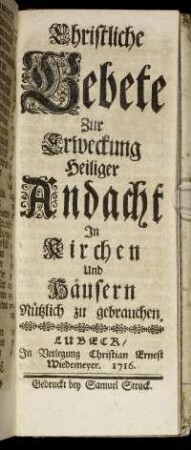 Christliche
Gebete
Zur
Erweckung
Heiliger
Andacht
In
Kirchen
Und
Häusern
Nützlich zu gebrauchen.
LUBECK/
In Verlegung Christian Ernest
Wiedemeyer. 1716.
Gedruckt bey Samuel Struck.